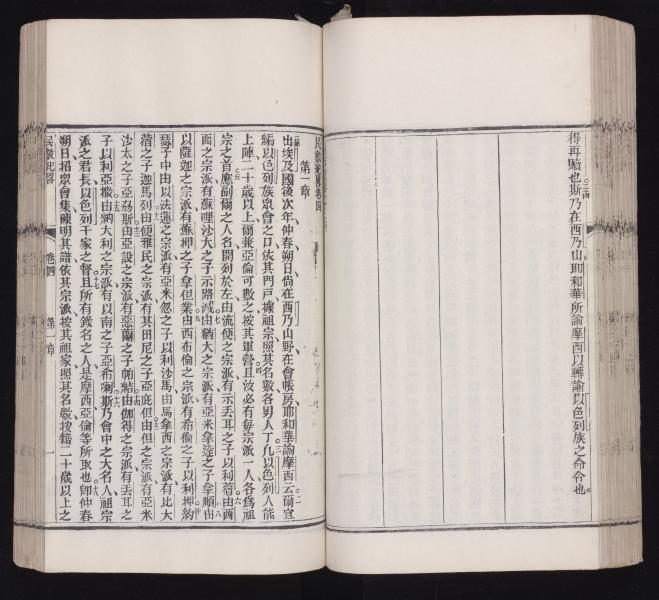 得再贖也斯乃在西乃山耶和華所諭摩西以轉諭以色列族之命令也
民數紀畧卷四
第一章
出埃及國後次年仲春朔日尙在西乃山野在會帳房耶和華諭摩西云爾宜
編以色列族眾會之口依其門戶據祖宗照其名數各男人丁凡以色列人能
上陣二十歲以上爾兼亞倫可數之按其軍營且汝必有每宗派一人各爲祖
宗之首應副爾之人名開列於左由流便之宗派有示丟耳之子以利蓿由西
面之宗派有蘇哩沙大之子示路滅由猶大之宗派有亞米拿達之子拿順由
以薩迦之宗派有蘇押之子拿但業由西布倫之宗派有希倫之子以利押約
瑟子中由以法蓮之宗派有亞米忽之子以利沙馬由馬拿西之宗派有比大
蓿之子迦馬列由便雅民之宗派有其田尼之子亞庇但由但之宗派有亞米
沙太之子亞由亞設之宗派有之子帕結由伽得之宗派有丟耳之
子以利亞撒由納大利之宗派有以南之子亞希喇斯乃會中之大名人祖宗
派之君長以色列千家之督且所有錄名之人是摩西亞倫等所取也卽仲春
朔日招眾會集陳明其譜依其宗派按其祖家照其名數按籍二十歲以上之
民數紀畧
卷四
第一章
一